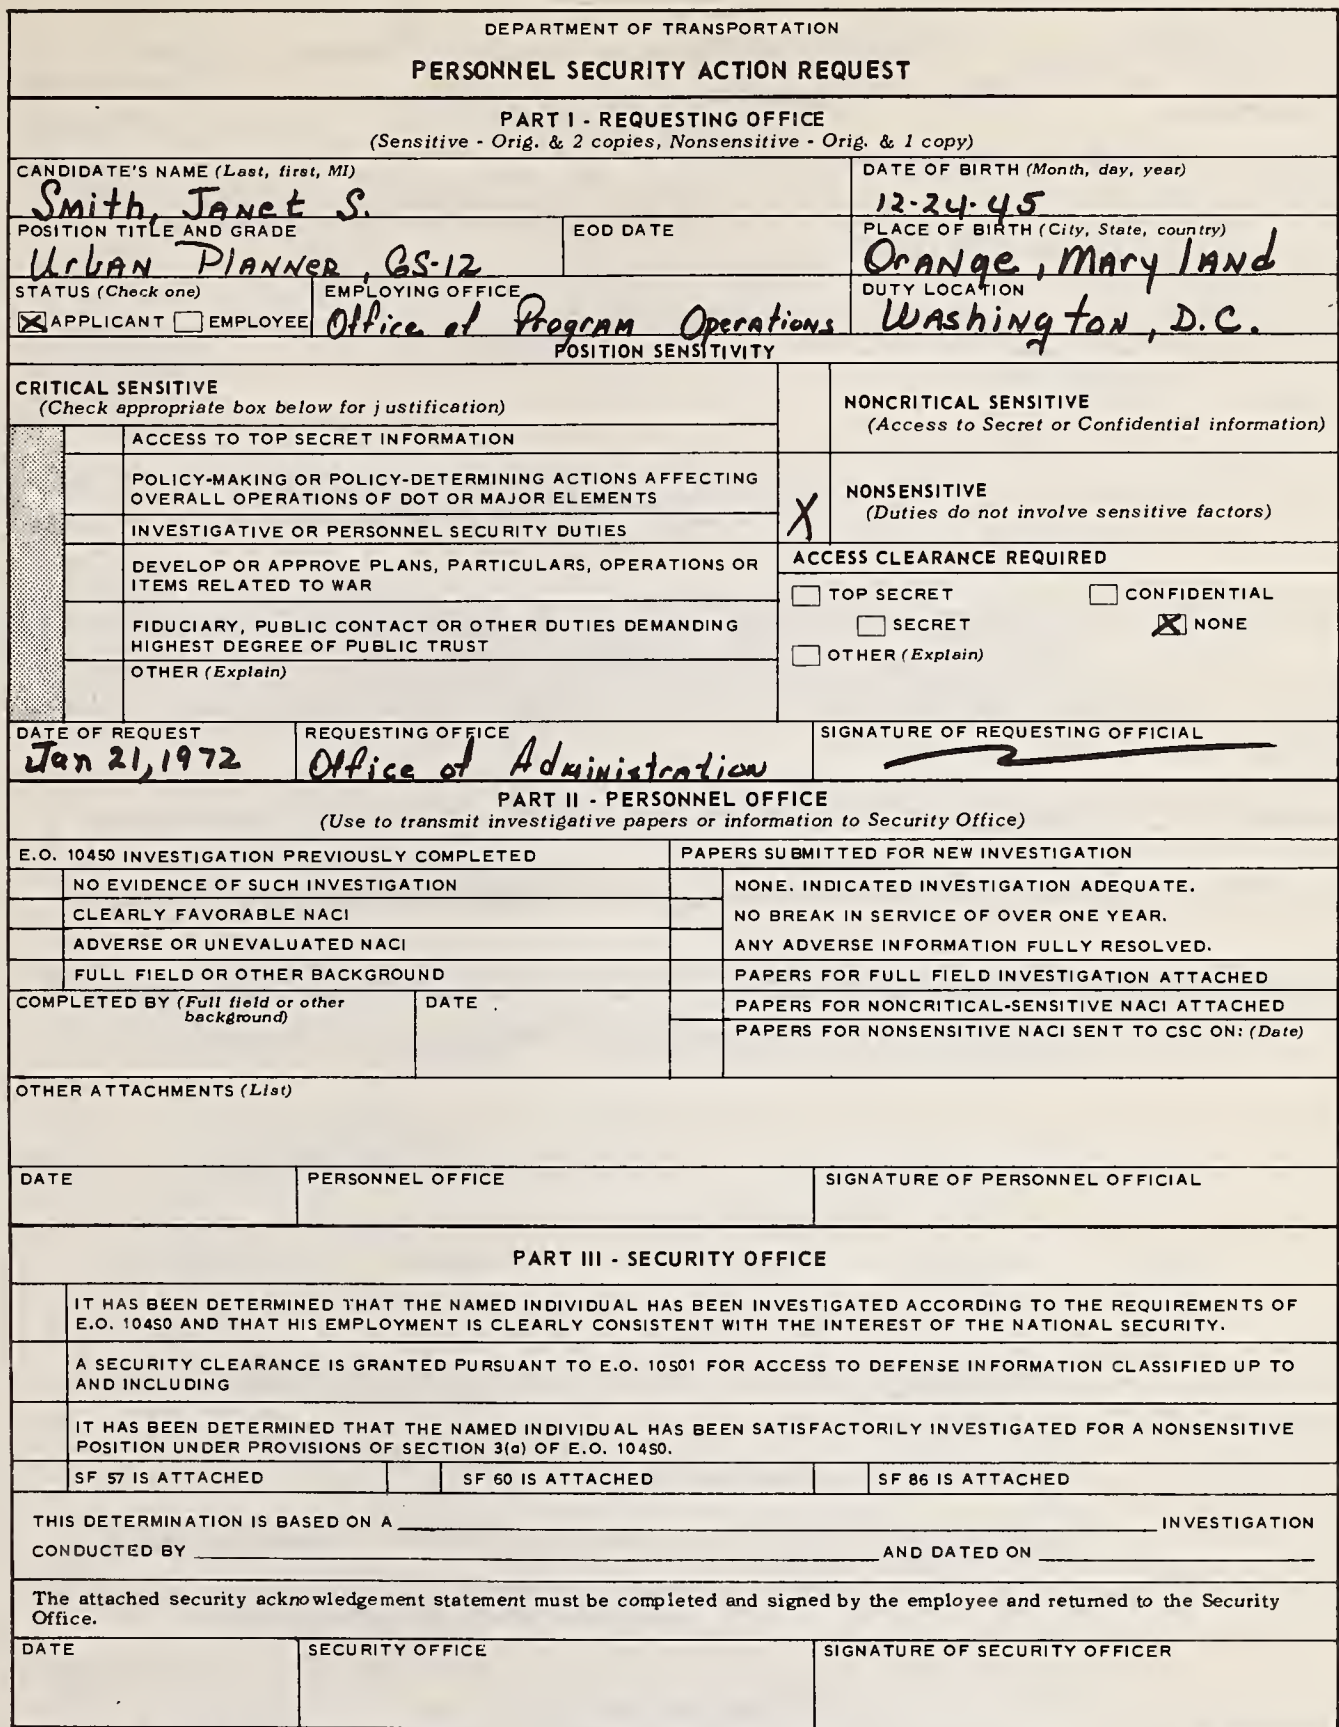 DEPARTMENT OF TRANSPORTATION
PERSONNEL SECURITY ACTION REQUEST
PART I - REQUESTING OFFICE
(Sensitive - Orig. & 2 copies, Nonsensitive - Orig. & 1 copy)
CANDIDATE'S NAME (Last, first, MI)
Smith, Janet S.
DATE OF BIRTH (Month, day, year)
12-24-45
POSITION TITLE AND GRADE
Urban Planner, GS-12
EOD DATE
PLACE OF BIRTH (City, State, country)
Orange, Maryland
STATUS (Check one)
X APPLICANT EMPLOYEE
EMPLOYING OFFICE
Office of Program Operations
DUTY LOCATION
Washington, D.C.
POSITION SENSITIVITY
CRITICAL SENSITIVE
(Check appropriate box below for justification)
ACCESS TO TOP SECRET INFORMATION
POLICY-MAKING OR POLICY-DETERMINING ACTIONS AFFECTING
OVERALL OPERATIONS OF DOT OR MAJOR ELEMENTS
INVESTIGATIVE OR PERSONNEL SECURITY DUTIES
DEVELOP OR APPROVE PLANS, PARTICULARS, OPERATIONS OR
ITEMS RELATED TO WAR
FIDUCIARY, PUBLIC CONTACT OR OTHER DUTIES DEMANDING
HIGHEST DEGREE OF PUBLIC TRUST
OTHER (Explain)
NONCRITICAL SENSITIVE
(Access to Secret or Confidential information)
X NONSENSITIVE
(Duties do not involve sensitive factors)
ACCESS CLEARANCE REQUIRED
TOP SECRET CONFIDENTIAL
SECRET X NONE
OTHER (Explain)
DATE OF REQUEST
Jan 21, 1972
REQUESTING OFFICE
Office of Administration
SIGNATURE OF REQUESTING OFFICIAL
PART II - PERSONNEL OFFICE
(Use to transmit investigative papers or information to Security Office)
E.O. 10450 INVESTIGATION PREVIOUSLY COMPLETED
NO EVIDENCE OF SUCH INVESTIGATION
CLEARLY FAVORABLE NACI
ADVERSE OR UNEVALUATED NACI
FULL FIELD OR OTHER BACKGROUND
COMPLETED BY (Full field or other
background)
DATE
PAPERS SUBMITTED FOR NEW INVESTIGATION
NONE. INDICATED INVESTIGATION ADEQUATE.
NO BREAK IN SERVICE OF OVER ONE YEAR.
ANY ADVERSE INFORMATION FULLY RESOLVED.
PAPERS FOR FULL FIELD INVESTIGATION ATTACHED
PAPERS FOR NONCRITICAL-SENSITIVE NACI ATTACHED
PAPERS FOR NONSENSITIVE NACI SENT TO CSC ON: (Date)
OTHER ATTACHMENTS (List)
DATE
PERSONNEL OFFICE
SIGNATURE OF PERSONNEL OFFICIAL
PART III - SECURITY OFFICE
IT HAS BEEN DETERMINED THAT THE NAMED INDIVIDUAL HAS BEEN INVESTIGATED ACCORDING TO THE REQUIREMENTS OF
E.O. 10450 AND THAT HIS EMPLOYMENT IS CLEARLY CONSISTENT WITH THE INTEREST OF THE NATIONAL SECURITY.
A SECURITY CLEARANCE IS GRANTED PURSUANT TO E.O. 10501 FOR ACCESS TO DEFENSE INFORMATION CLASSIFIED UP TO
AND INCLUDING
IT HAS BEEN DETERMINED THAT THE NAMED INDIVIDUAL HAS BEEN SATISFACTORILY INVESTIGATED FOR A NONSENSITIVE
POSITION UNDER PROVISIONS OF SECTION 3(a) OF E.O. 10450.
SF 57 IS ATTACHED SF 60 IS ATTACHED SF 86 IS ATTACHED
THIS DETERMINATION IS BASED ON A INVESTIGATION
CONDUCTED BY AND DATED ON
The attached security acknowledgement statement must be completed and signed by the employee and returned to the Security
Office.
DATE
SECURITY OFFICE
SIGNATURE OF SECURITY OFFICER